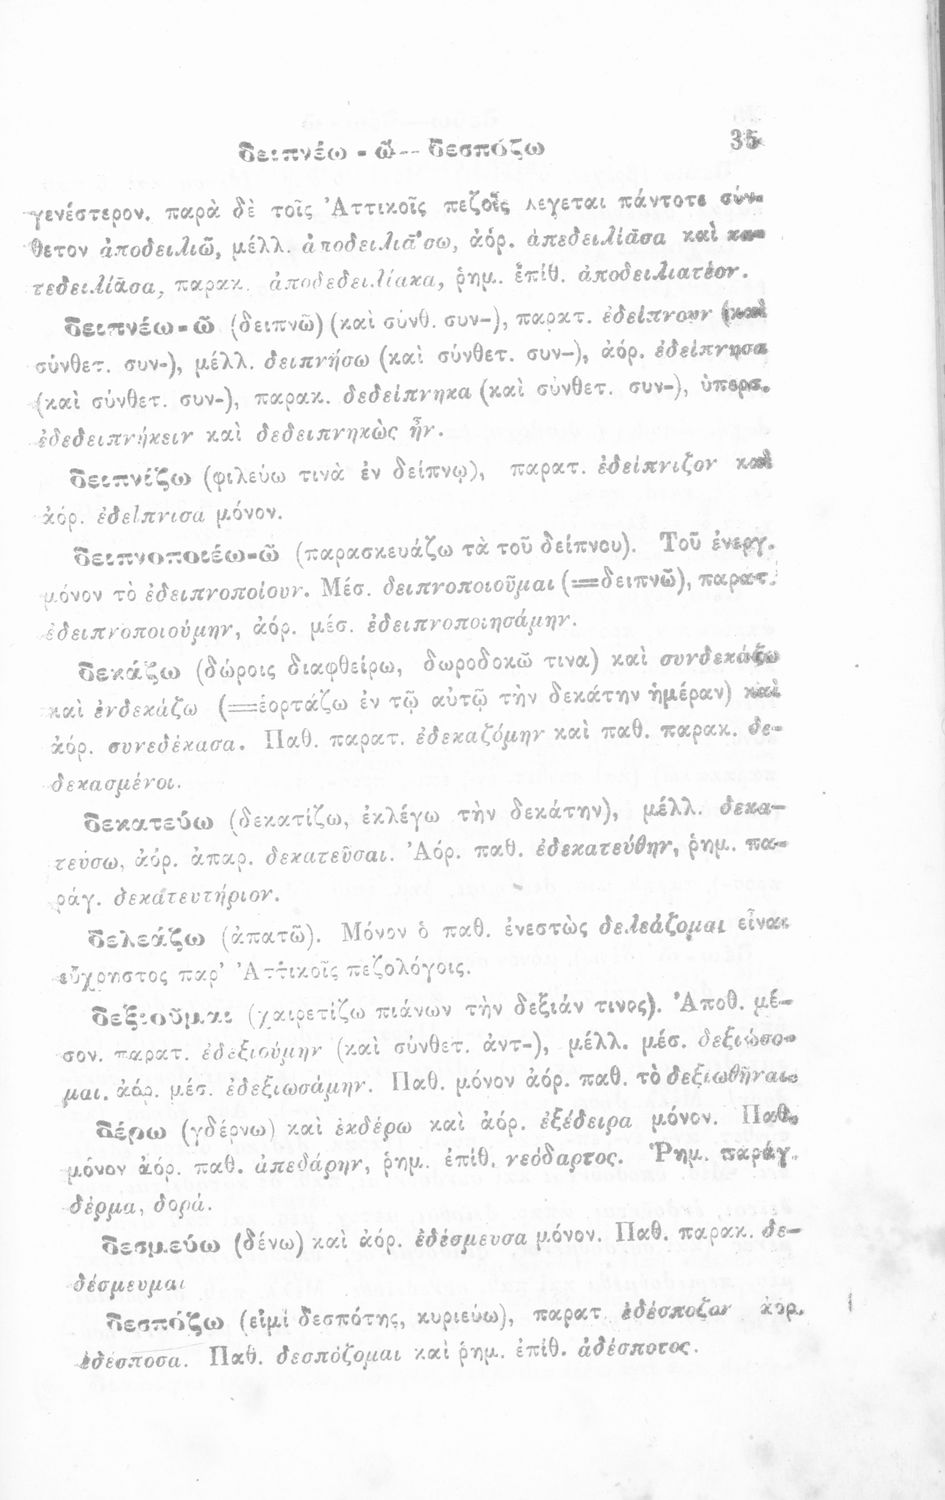 δειπνέω - ῶ -- δεσπόζω 35
γενέστερον. παρὰ δὲ τοῖς Ἀττικοῖς πεζοῖς λεγεται πάντοτε σύν-
θετον ἀποδειλιῶ, μέλλ. ἀποδειλιᾱ΄σω, ἀόρ. ἀπεδειλίᾱσα καὶ κα-
τεδειλίᾱσα, παρακ. ἀποδεδειλίακα, ῥημ. ἐπίθ. ἀποδειλιατέον.
δειπνέω-ῶ (δειπνῶ) (καὶ σύνθ. συν-), παρατ. ἐδείπνουν (καὶ
σύνθετ. συν-), μέλλ. δειπνήσω (καὶ σύνθετ. συν-), ἀόρ. ἐδείπνησα
(καὶ σύνθετ. συν-), παρακ. δεδείπνηκα (καὶ σύνθετ. συν-), ὑπερσ.
ἐδεδειπνήκειν καὶ δεδειπνηκὼς ἦν.
δειπνίζω (φιλεύω τινὰ ἐν δείπνῳ), παρατ. ἐδείπνιζον καὶ
ἀόρ. ἐδείπνισα μόνον.
δειπνοποιέω-ῶ (παρασκευάζω τὰ τοῦ δείπνου). Τοῦ ἐνεργ.
μόνον τὸ ἐδειπνοποίουν. Μέσ. δειπνοποιοῦμαι (=δειπνῶ), παρατ.
ἐδειπνοποιούμην, ἀόρ. μέσ. ἐδειπνοποιησάμην.
δεκάζω (δώροις διαφθείρω, δωροδοκῶ τινα) καὶ συνδεκάζω
καὶ ἐνδεκάζω (=ἑορτάζω ἐν τῷ αὐτῷ τὴν δεκάτην ἡμέραν) καὶ
ἀόρ. συνεδέκασα. Παθ. παρατ. ἐδεκαζόμην καὶ παθ. παρακ. δε-
δεκασμένοι.
δεκατεύω (δεκατίζω, ἐκλέγω τὴν δεκάτην), μέλλ. δεκα-
τεύσω, ἀόρ. ἀπαρ. δεκατεῦσαι. Ἀόρ. παθ. ἐδεκατεύθην, ῥημ. πα-
ράγ. δεκατευτήριον.
δελεάζω (ἀπατῶ). Μόνον ὁ παθ. ἐνεστὼς δελεάζομαι εἶναι
εὔχρηστος παρ' Ἀττικοῖς πεζολόγοις.
δεξιοῦμαι (χαιρετίζω πιάνων τὴν δεξιάν τινος). Ἀποθ. μέ-
σον. παρατ. ἐδεξιούμην (καὶ σύνθετ. ἀντ-), μέλλ. μέσ. δεξιώσο-
μαι, ἀόρ. μέσ. ἐδεξιωσάμην. Παθ. μόνον ἀόρ. παθ. τὸ δεξιωθῆναι.
δέρω (γδέρνω) καὶ ἐκδέρω καὶ ἀόρ. ἐξέδειρα μόνον. Παθ.
μόνον ἀόρ. παθ. ἀπεδάρην, ῥημ. ἐπίθ. νεόδαρτος. Ῥημ. παράγ.
δέρμα, δορά.
δεσμεύω (δένω) καὶ ἀόρ. ἐδέσμευσα μόνον. Παθ. παρακ. δε-
δέσμευμαι
δεσπόζω (εἰμί δεσπότης, κυριεύω), παρατ. ἐδέσποζον ἀόρ.
ἐδέσποσα. Παθ. δεσπόζομαι καὶ ῥημ. ἐπίθ. ἀδέσποτος.